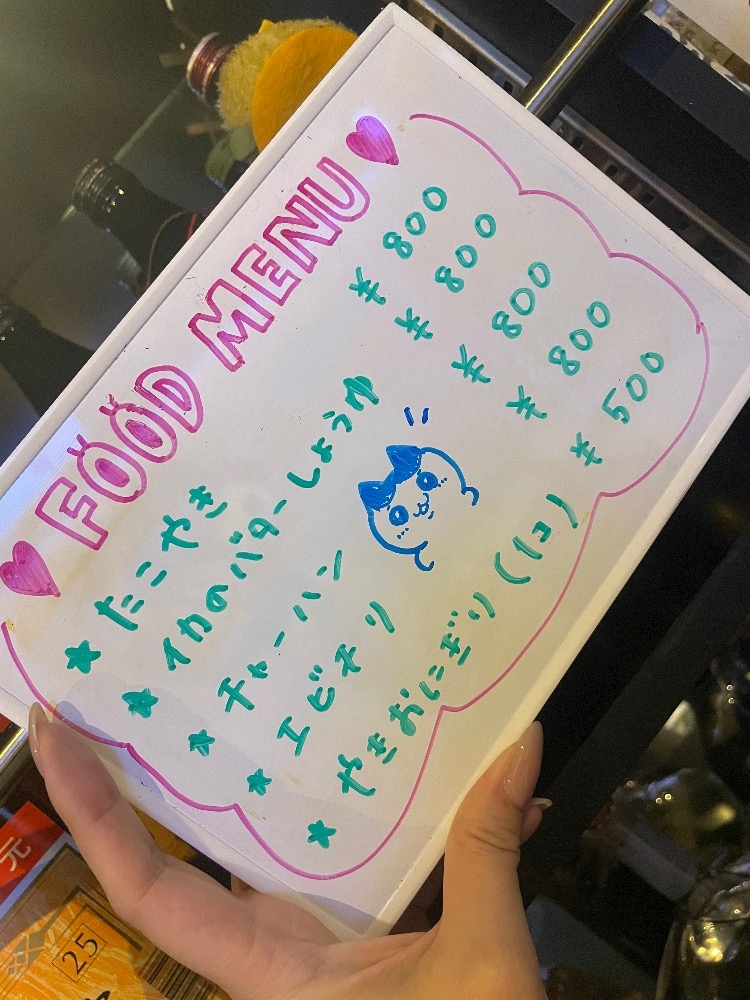 FOOD MENU
たこやき ¥800
イカのバターしょうゆ ¥800
チャーハン ¥800
エビチリ ¥800
やきおにぎり(1コ) ¥500
元
25